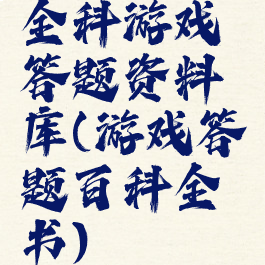 全科游戏
答题资料
库(游戏答
题百科全
书)